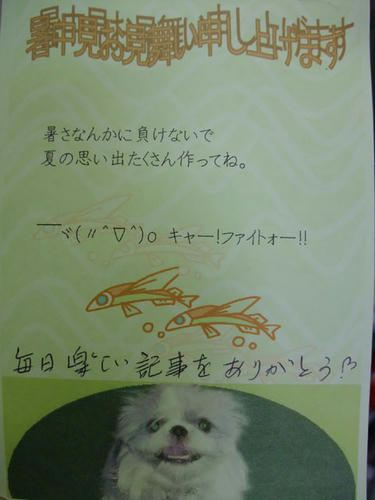 暑中お見舞い申し上げます
暑さなんかに負けないで
夏の思い出たくさん作ってね。
￣￣ヾ(〃^∇^)o キャー!ファイトォー!!
毎日楽しい記事をありがとう!?